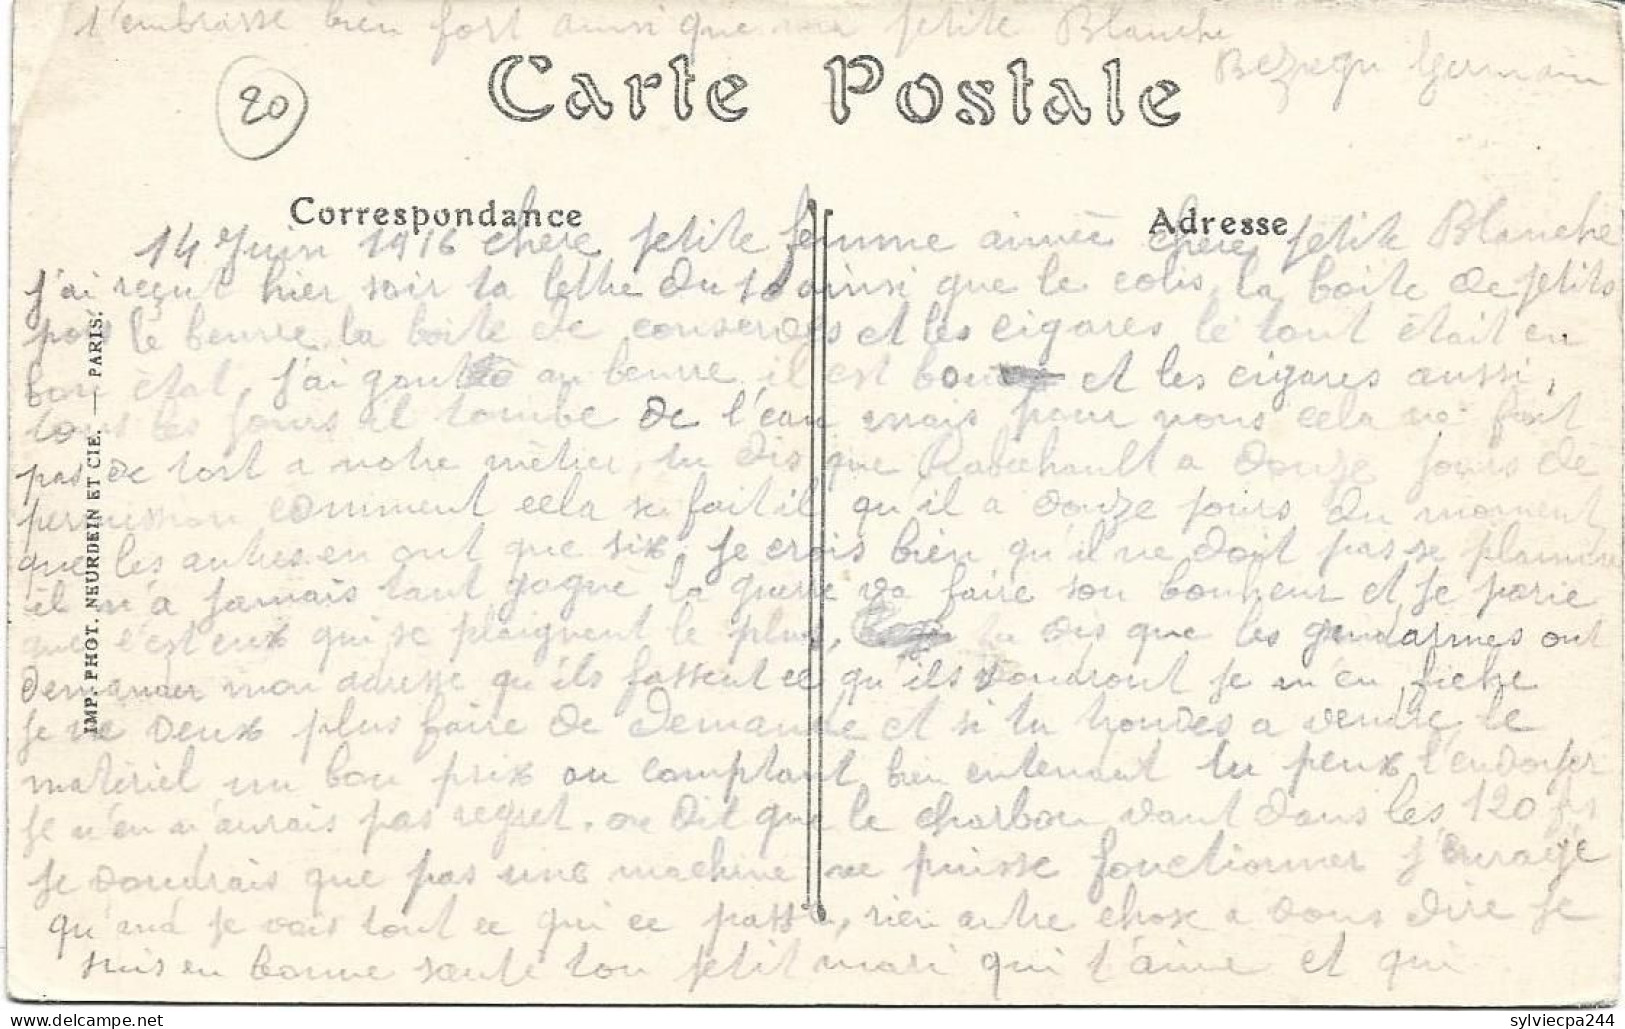 t'embrasse bien fort ainsi que ma petite Blanche
Germain
20
Carte Postale
Correspondance
Adresse
14 Juin 1916 chère petite femme aimée chère petite Blanche
j'ai reçut hier soir ta lettre du 10 ainsi que le colis, la boite de petits
pois le beurre, la boite de conserves et les cigares le tout était en
bon état, j'ai gouté au beurre il est bon et les cigares aussi,
tous les jours il tombe de l'eau mais pour nous cela ne fait
pas de tort a notre métier, tu dis que Rabechault a douze jours de
permission comment cela se fait il qu'il a douze jours du moment
que les autres en ont que six, je crois bien qu'il ne doit pas se plaindre
il n'a jamais tant gagné la guerre va faire son bonheur et je parie
que c'est eux qui se plaignent le plus, tu dis que les gendarmes ont
demander mon adresse qu'ils fassent ce qu'ils voudront je m'en fiche
je ne veux plus faire de demande et si tu trouves a vendre le
matériel un bon prix au comptant bien entenant tu peux
je n'en n'aurais pas regret, on dit que le charbon vaut dans les 120 frs
je voudrais que pas une machine ne puisse fonctionner j'enrage
qu'and je vois tout ce qui ce passe, rien autre chose a vous dire je
suis en bonne santé ton petit mari qui t'aime et qui
IMP. PHOT. NEURDEIN ET CIE. — PARIS.
sylviecpa244